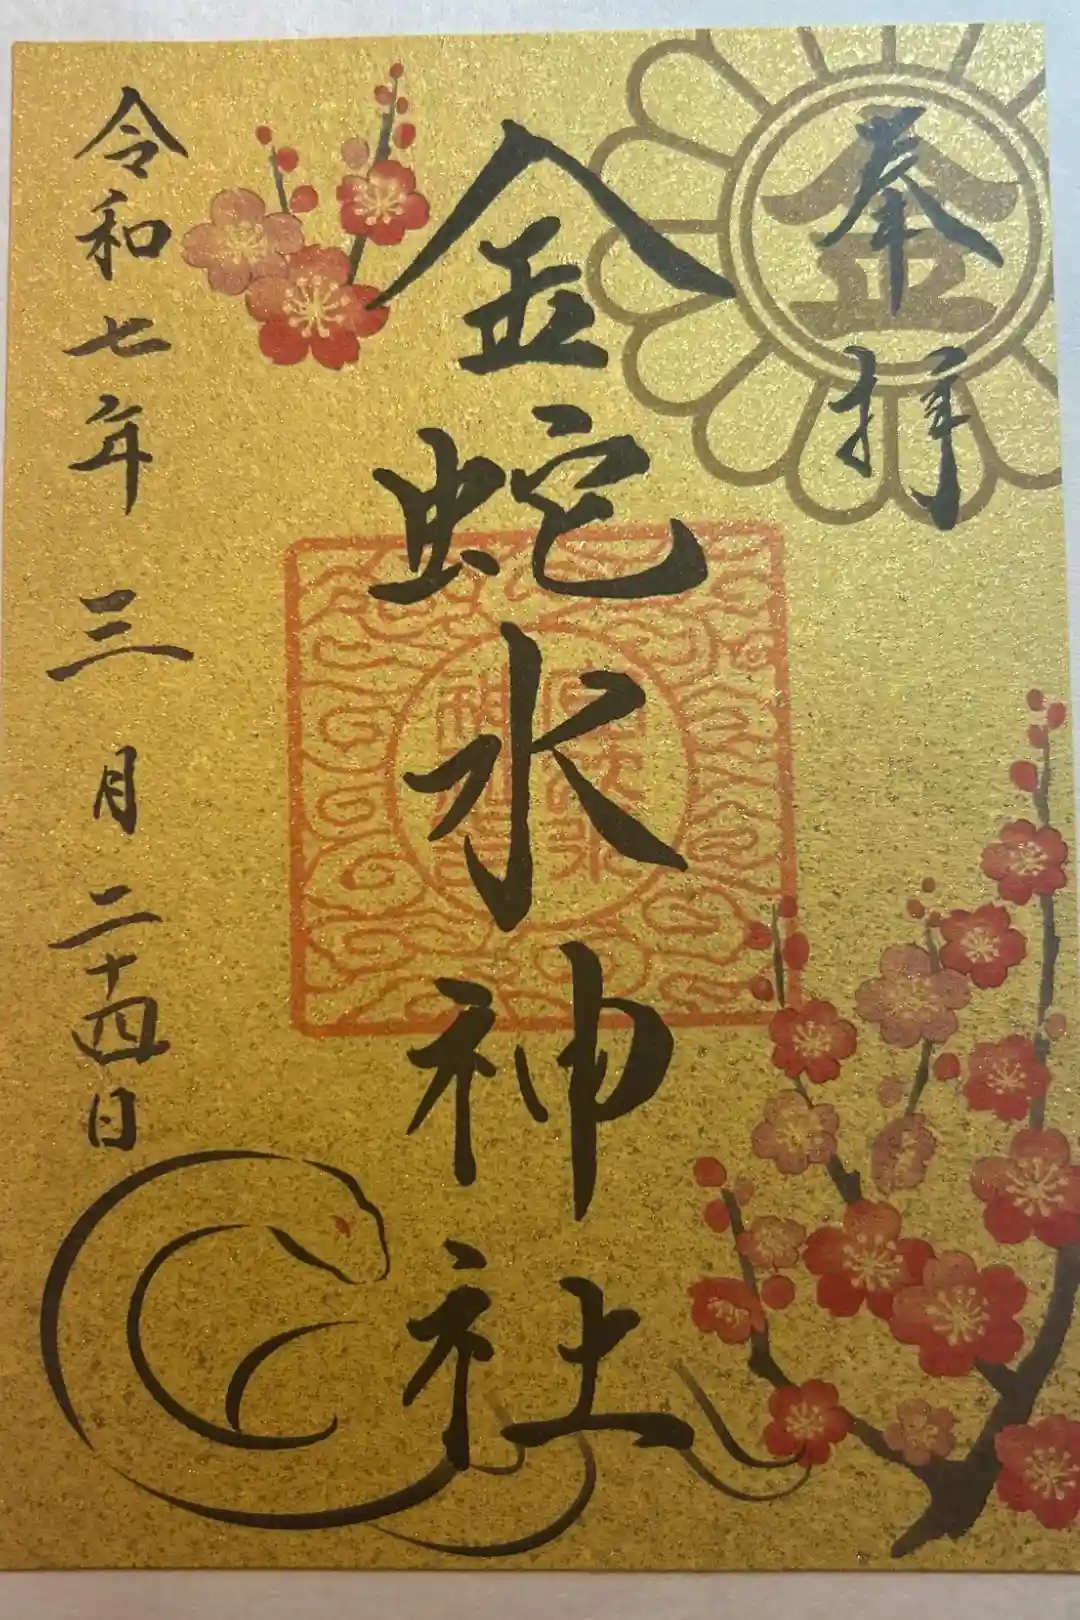 奉拝
金
金蛇水神社
令和七年三月二十四日